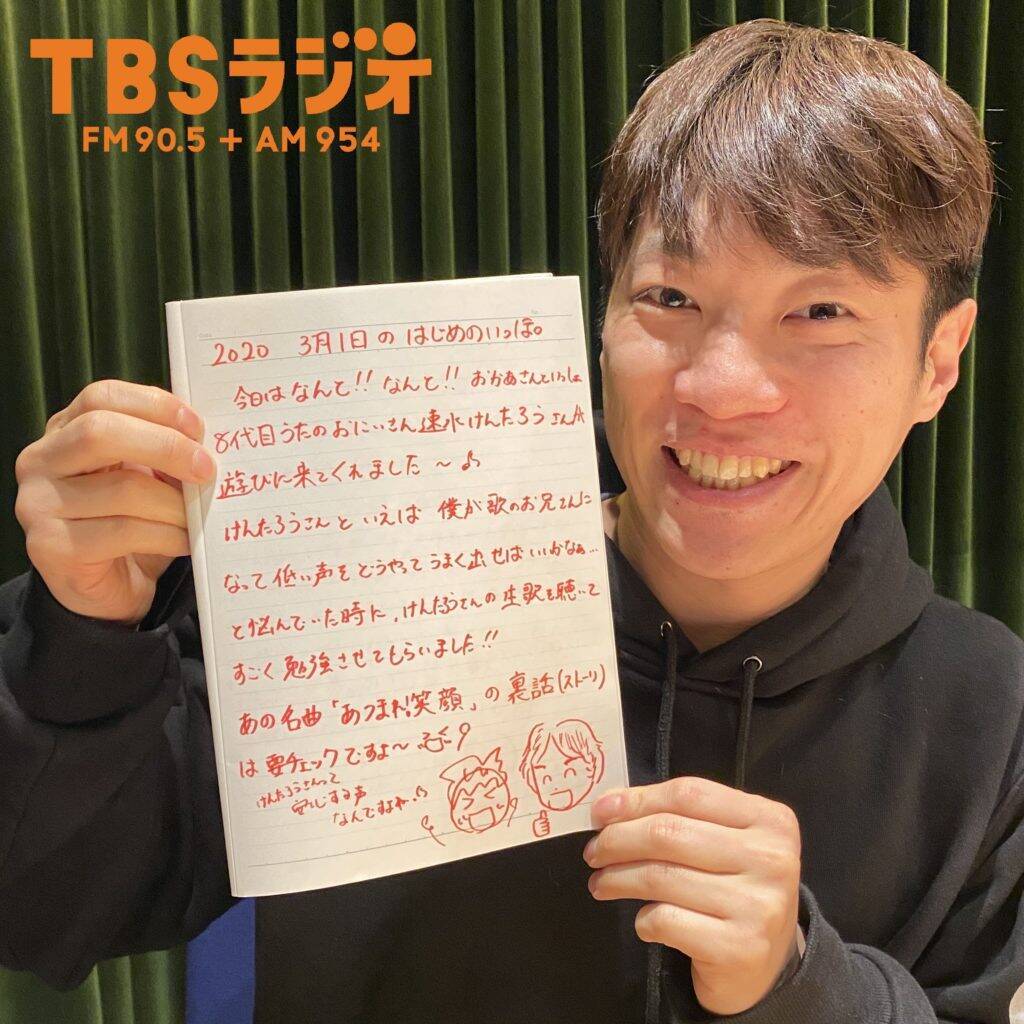 TBSラジオ
FM90.5 + AM954
2020 3月1日の はじめのいっぽ。
今日は なんと!! なんと!! おかあさんといっしょ
8代目うたのおにいさん 速水けんたろうさんが
遊びに来てくれました〜♪
けんたろうさんと いえば 僕が歌のお兄さんに
なって 低い声を どうやって うまく出せば いいかなぁ…
と悩んでいた時に、けんたろうさんの 生歌を聴いて
すごく 勉強させてもらいました!!
あの名曲「あつまれ!笑顔」の 裏話(ストーリー)
は 要チェックですよ〜
けんたろうさんって
安心する声
なんですよね♪